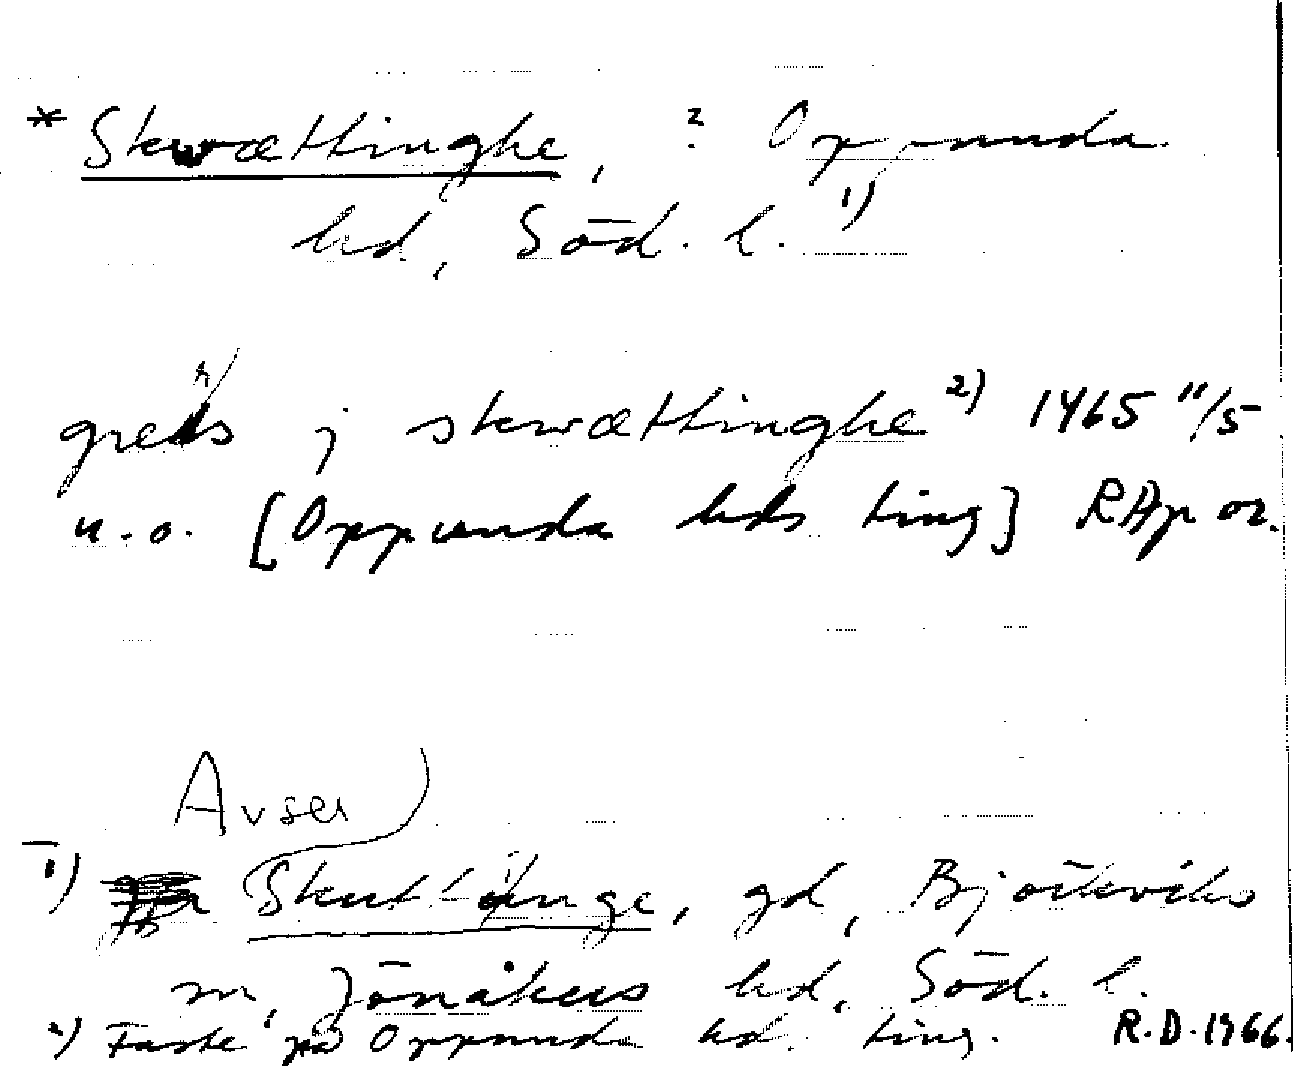 * Skwættinghe, ? Oppunda
hd, Söd. l. 1)
grels j skwættinghe 2) 1465 11/5
u.o. [Oppunda hds ting] RAp or.
Avser
1) Skuttunge, gd, Björkviks
sn, Jönåkers hd, Söd. l.
2) Faste på Oppunda hd. ting. R.D. 1966.